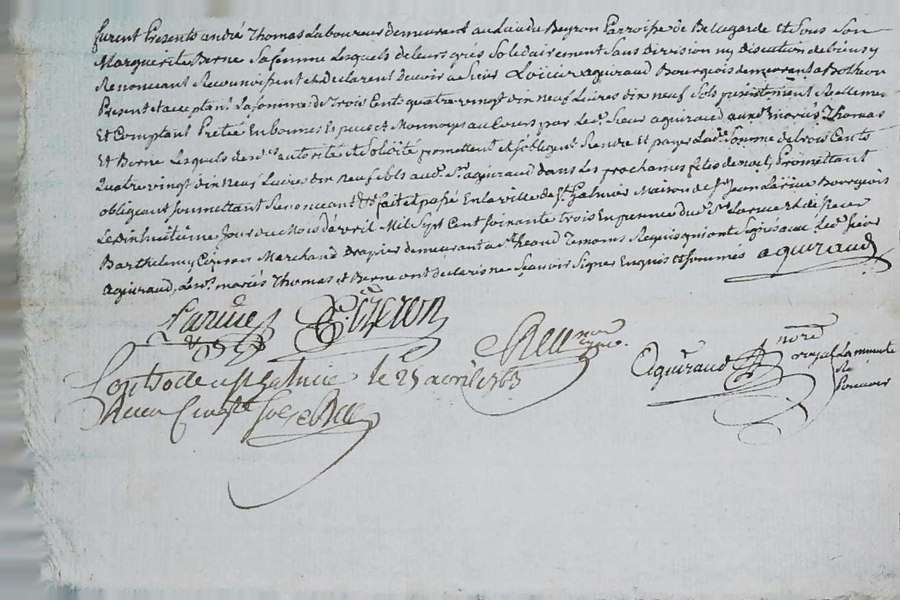 furent Presents andré Thomas Laboureur demeurant au Lieu du Beyron Parroisse de Bellegarde Et Sous Son
Marguerite Berne Sa femme Lesquels de leurs grés Solidairement Sans division ny discution de biens y
Renonceant Reconnoissent et déclarent devoir a Sieur aguiraud Bourgeois demeurant a Botheon
Present et acceptant La Somme de Trois Cents quatre vingt dix neuf Livres dix neuf Sols présentement Réellement
Et Comptant Pretée En bonnes Espèces et Monnoye au Cours par Led. Sieur aguiraud auxd. mariés Thomas
Et Berne Lesquels de Son autorité et Solidité promettent et s'obligent Rendre Et payer Lad. Somme de trois Cents
Quatre vingt dix neuf Livres dix neuf Sols aud. Sr. aguiraud dans Les prochaines fêtes de noel, Promettant
obligeant Soumettant Renonceant &c fait et passé En la ville de St. Galmier Maison de Jean Larüe Bourgeois
Le dix huitième Jour du Mois d'avril Mil Sept Cent Soixante Trois En presence dud. Sr. Larüe et de Sieur
Barthelemy Cizeron Marchand Drapier demeurant a Temoins Requis qui ont Signés avec Led. Sieur
Aguiraud, Lesd. mariés Thomas et Berne ont declaré ne Scavoir Signer Enquis et Sommés aguiraud
Larüe Cizeron
Aguiraud nore. royal La minute
Controlé a St. Galmier le 25 avril 1763
Reçu